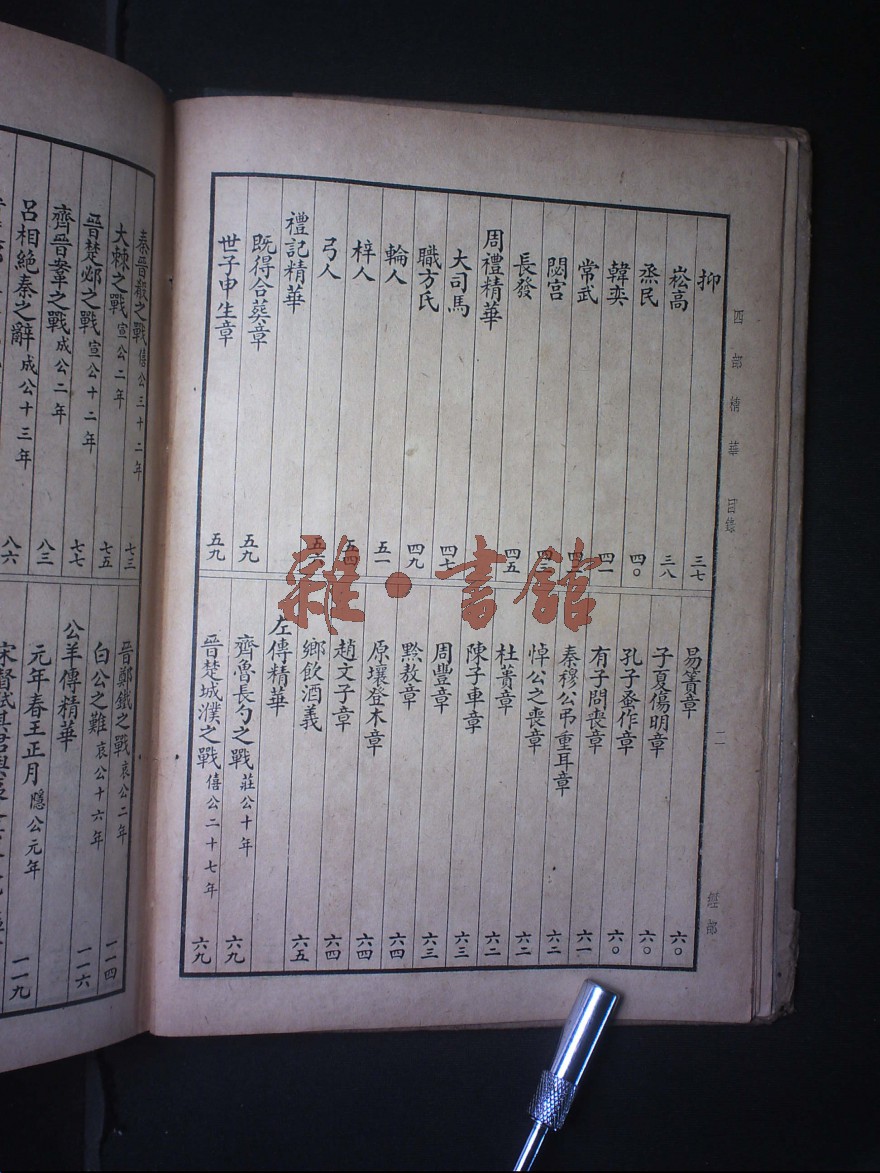 四部精華 目錄
二
經部
抑 三七
崧高 三八
烝民 四〇
韓奕 四一
常武
閟宮
長發 四五
周禮精華
大司馬 四七
職方氏 四九
輪人 五一
梓人 五四
弓人
禮記精華
既得合葬章 五九
世子申生章 五九
易簀章 六〇
子夏傷明章 六〇
孔子蚤作章 六〇
有子問喪章 六一
秦穆公弔重耳章 六二
悼公之喪章 六二
杜蕢章 六二
陳子車章 六三
周豐章 六三
黔敖章 六四
原壤登木章 六四
趙文子章 六四
鄉飲酒義 六五
左傳精華
齊魯長勺之戰 莊公十年 六九
晉楚城濮之戰 僖公二十七年 六九
秦晉殽之戰 僖公三十二年 七三
大棘之戰 宣公二年 七五
晉楚邲之戰 宣公十二年 七七
齊晉鞌之戰 成公二年 八三
呂相絶秦之辭 成公十三年 八六
晉鄭鐵之戰 哀公二年 一一四
白公之難 哀公十六年 一一六
公羊傳精華
元年春王正月 隱公元年 一一九
雜·書館